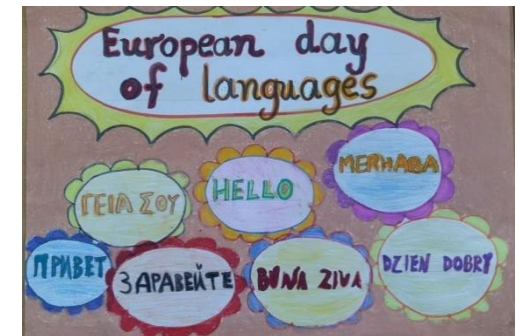 European day
of languages
ΓΕΙΑ ΣΟΥ
HELLO
MERHABA
ПРИВЕТ
ЗАРАВЕЙТЕ
BUNA ZIVA
DZIEN DOBRY